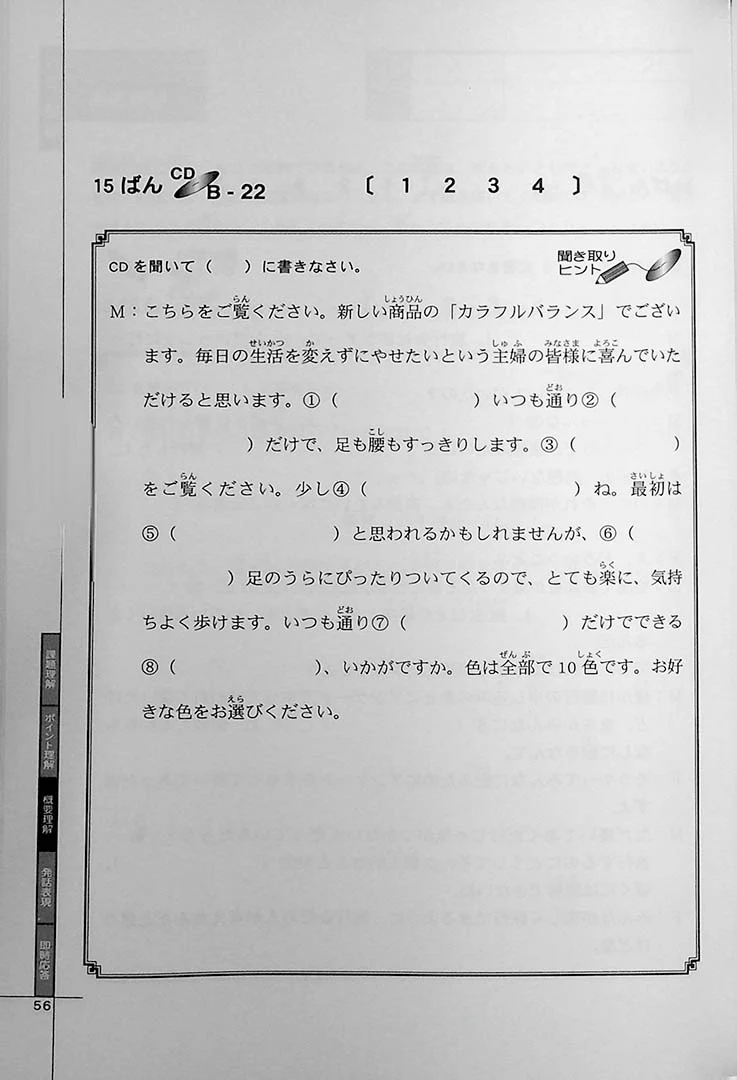 15 ばん CD B - 22 〔 1 2 3 4 〕
CDを聞いて（　）に書きなさい。
聞き取り
ヒント
M：こちらをご覧ください。新しい商品の「カラフルバランス」でござい
ます。毎日の生活を変えずにやせたいという主婦の皆様に喜んでいた
だけると思います。①（　　　　）いつも通り②（
　　　　）だけで、足も腰もすっきりします。③（　　　　）
をご覧ください。少し④（　　　　　　）ね。最初は
⑤（　　　　）と思われるかもしれませんが、⑥（
　　　）足のうらにぴったりついてくるので、とても楽に、気持
ちよく歩けます。いつも通り⑦（　　　　）だけでできる
⑧（　　　　）、いかがですか。色は全部で10色です。お好
きな色をお選びください。
課題理解
ポイント理解
概要理解
発話表現
即時応答
56